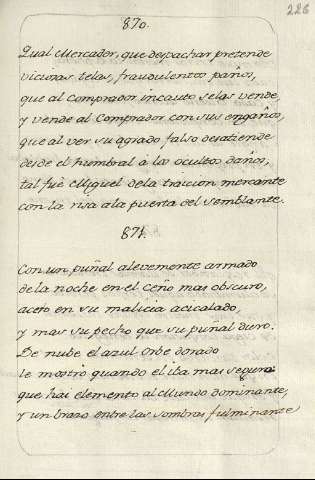 226
870.
Qual Mercader, que despachar pretende
viciosas telas, fraudulentos paños,
que al Comprador incauto selas vende,
y vende al Comprador con sus engaños,
que al ver su agrado falso desatiende
desde el humbral â los ocultos daños,
tal fuè Miguel dela traiccion mercante
con la risa ala puerta del semblante.
871.
Con un puñal alevemente armado
de la noche en el ceño mas obscuro,
en su malicia acicalado,
y mas su pecho que su puñal duro.
De nube el azul Orbe dorado
le mostrò quando el iba mas seguro
que hai elemento al Mundo dominante,
y un brazo entre las sombras fulminante